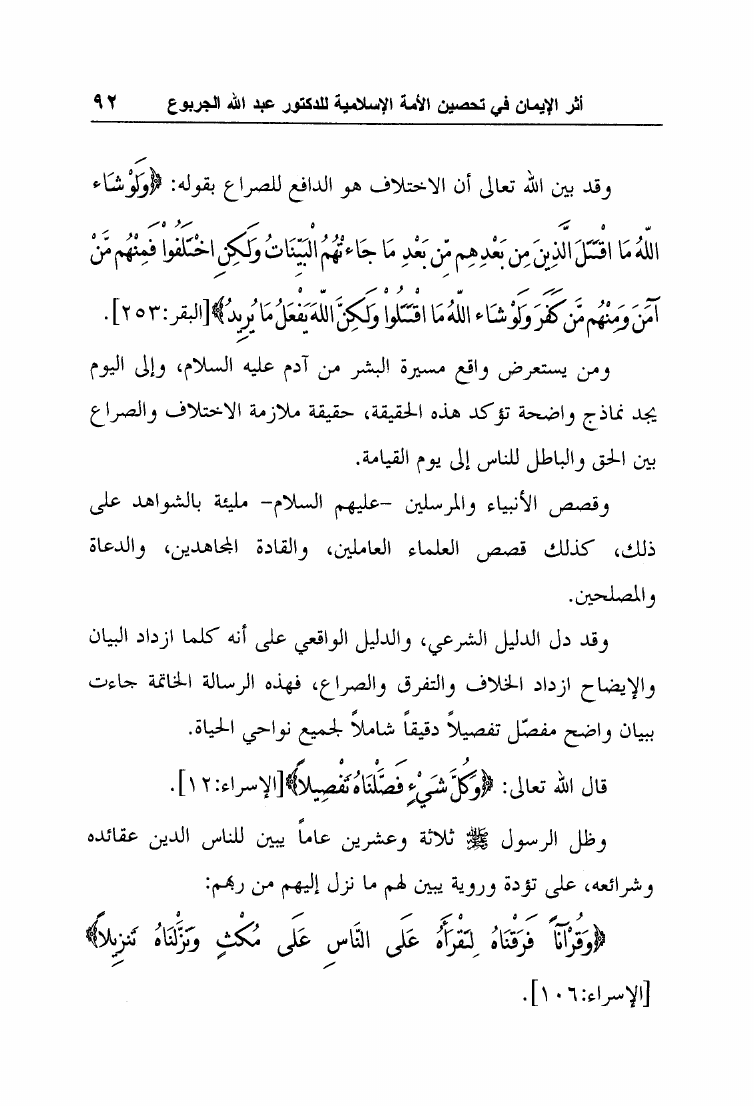 أثر الإيمان في تحصين الأمة الإسلامية للدكتور عبد الله الجربوع ٩٢
وقد بين الله تعالى أن الاختلاف هو الدافع للصراع بقوله: ﴿وَلَوْ شَاءَ
اللَّهُ مَا اقْتَتَلَ الَّذِينَ مِن بَعْدِهِم مِّن بَعْدِ مَا جَاءَتْهُمُ الْبَيِّنَاتُ وَلَكِنِ اخْتَلَفُوا فَمِنْهُم مَّنْ
آمَنَ وَمِنْهُم مَّن كَفَرَ وَلَوْ شَاءَ اللَّهُ مَا اقْتَتَلُوا وَلَكِنَّ اللَّهَ يَفْعَلُ مَا يُرِيدُ﴾[البقر:٢٥٣].
ومن يستعرض واقع مسيرة البشر من آدم عليه السلام، وإلى اليوم
يجد نماذج واضحة تؤكد هذه الحقيقة، حقيقة ملازمة الاختلاف والصراع
بين الحق والباطل للناس إلى يوم القيامة.
وقصص الأنبياء والمرسلين -عليهم السلام- مليئة بالشواهد على
ذلك، كذلك قصص العلماء العاملين، والقادة المجاهدين، والدعاة
والمصلحين.
وقد دل الدليل الشرعي، والدليل الواقعي على أنه كلما ازداد البيان
والإيضاح ازداد الخلاف والتفرق والصراع، فهذه الرسالة الخاتمة جاءت
ببيان واضح مفصّل تفصيلاً دقيقاً شاملاً لجميع نواحي الحياة.
قال الله تعالى: ﴿وَكُلَّ شَيْءٍ فَصَّلْنَاهُ تَفْصِيلاً﴾[الإسراء:١٢].
وظل الرسول ﷺ ثلاثة وعشرين عاماً يبين للناس الدين عقائده
وشرائعه، على تؤدة وروية يبين لهم ما نزل إليهم من ربهم:
﴿وَقُرْآناً فَرَقْنَاهُ لِتَقْرَأَهُ عَلَى النَّاسِ عَلَى مُكْثٍ وَنَزَّلْنَاهُ تَنزِيلاً﴾
[الإسراء:١٠٦].